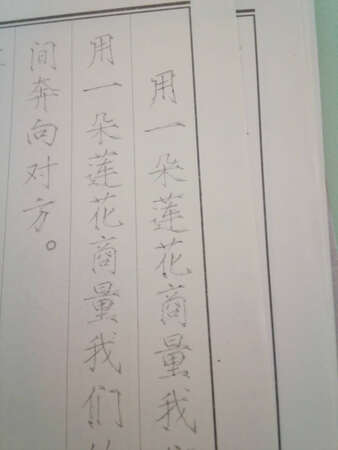 用一朵莲花商量我
用一朵莲花商量我们
间奔向对方。